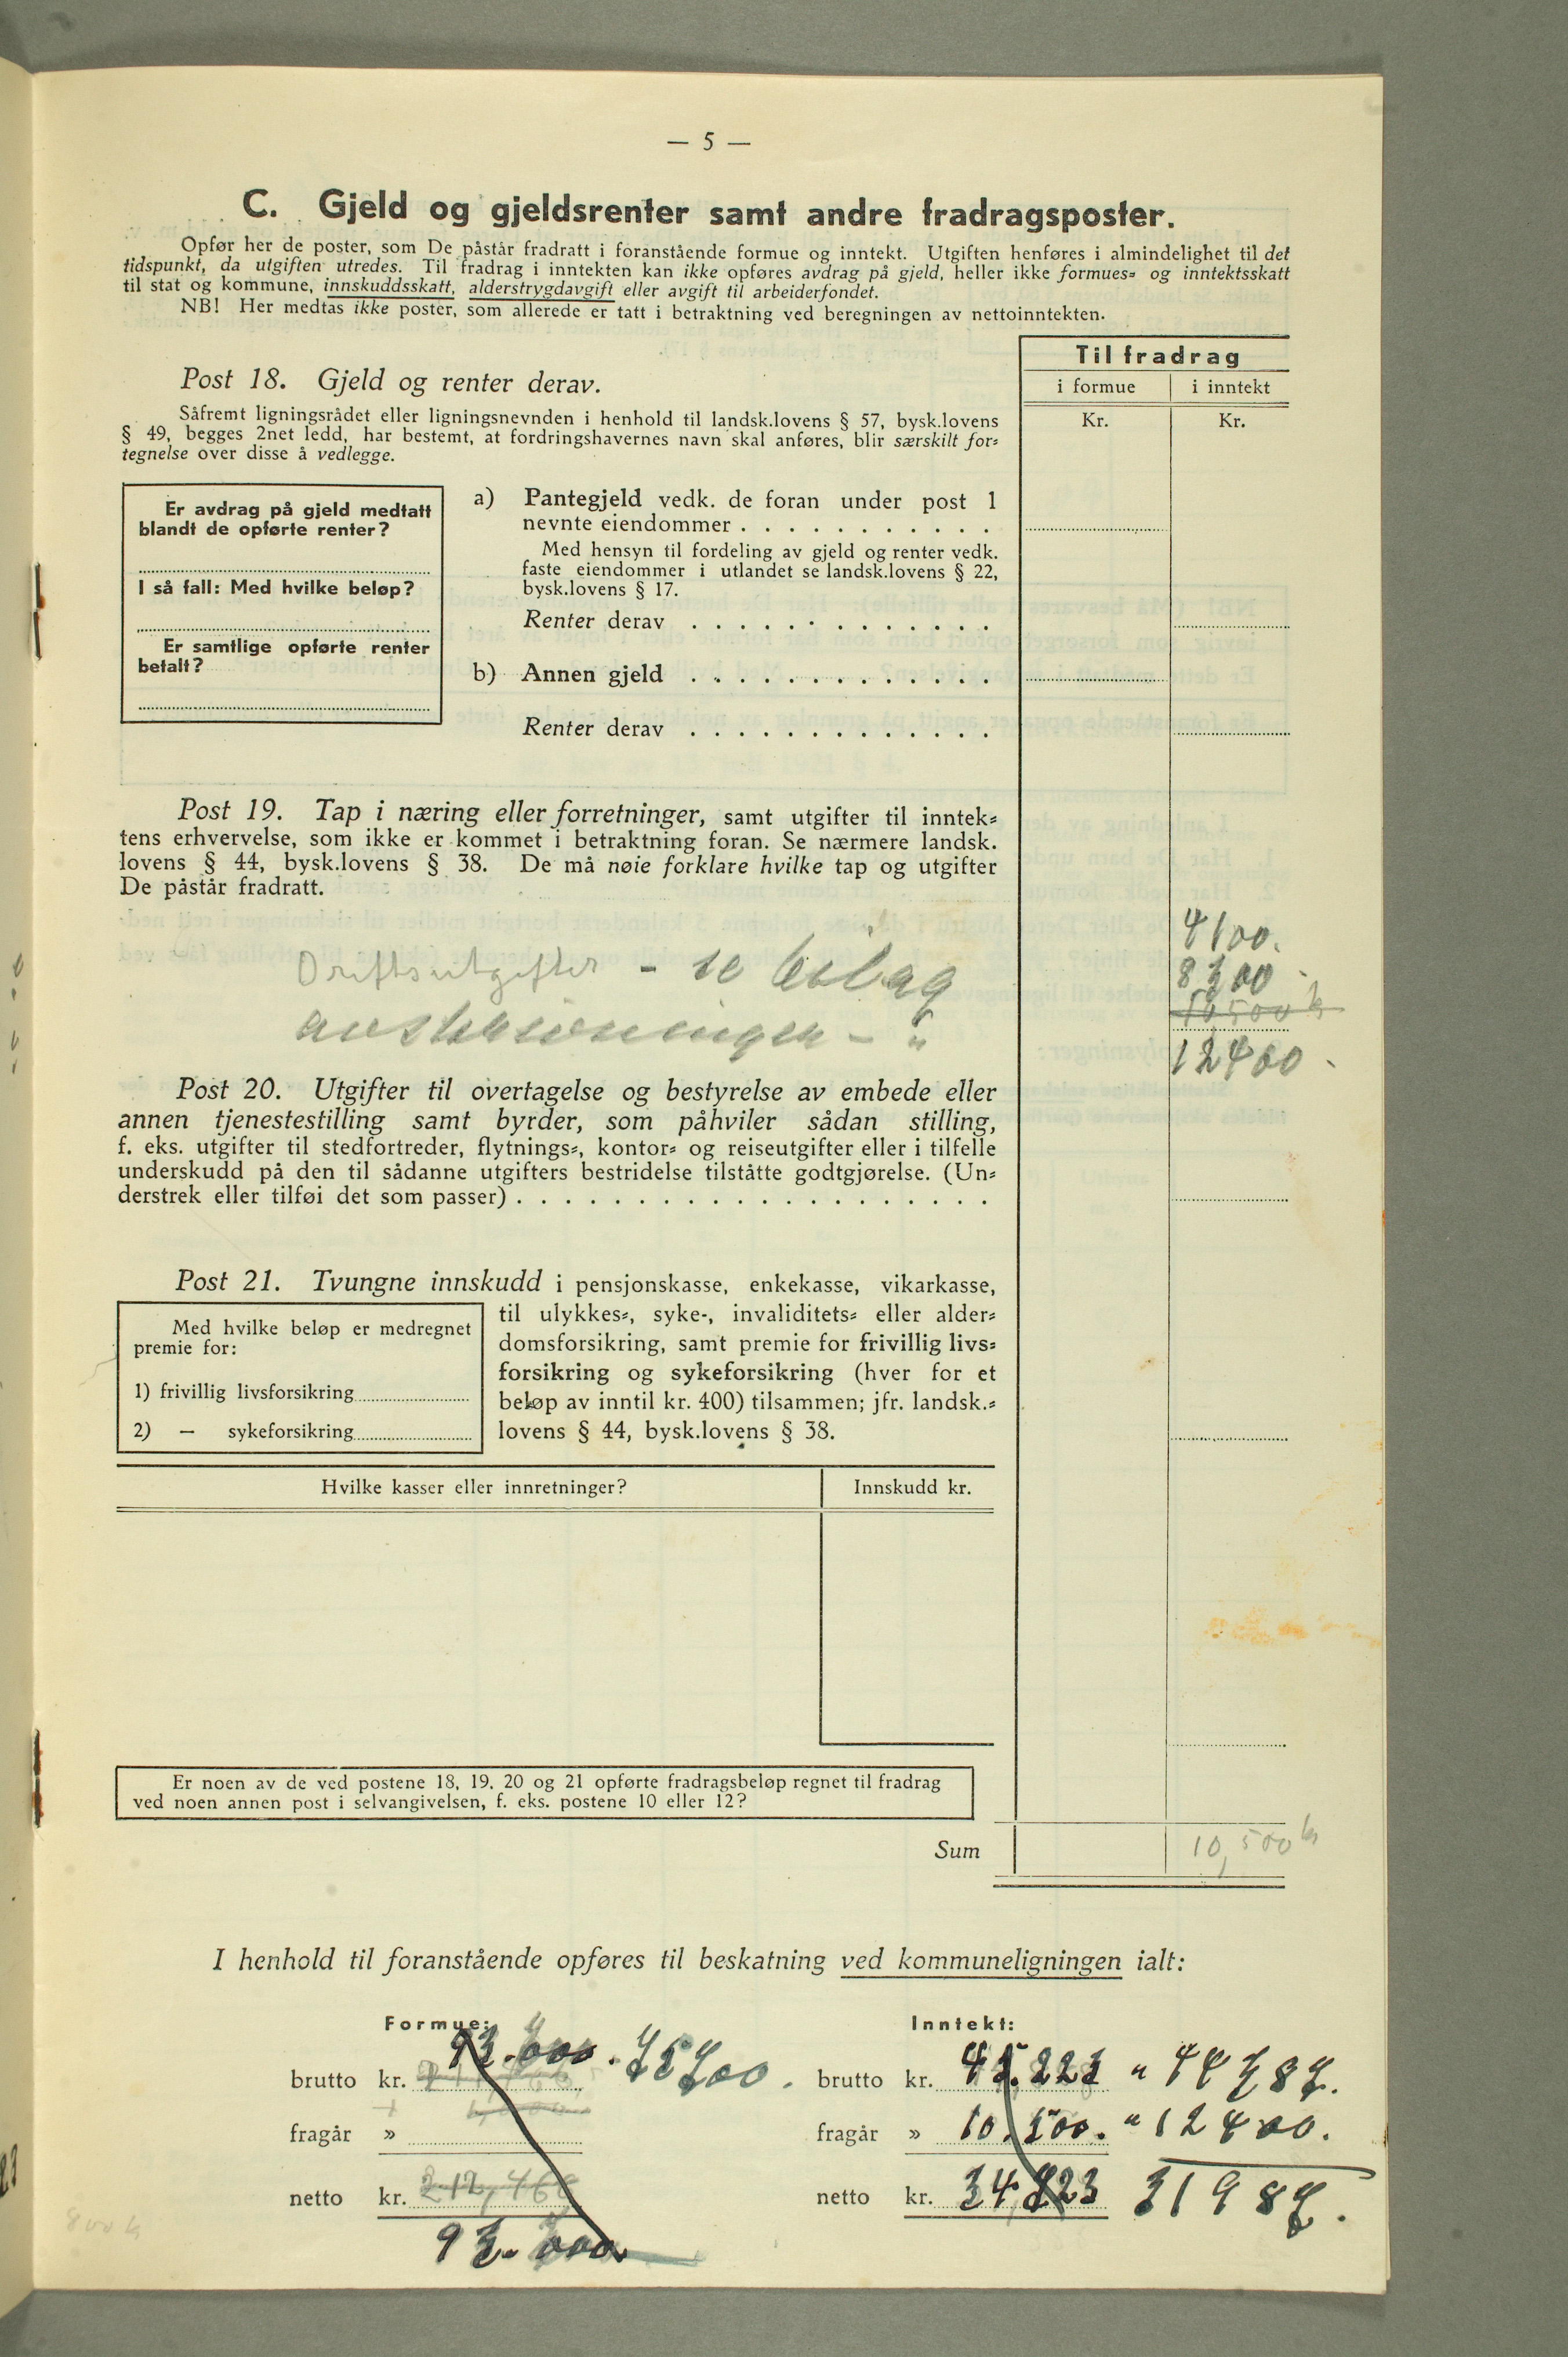 — 5 —
C. Gjeld og gjeldsrenter samt andre fradragsposter.
Opfør her de poster, som De påstår fradratt i foranstående formue og inntekt. Utgiften henføres i almindelighet til det
tidspunkt, da utgiften utredes. Til fradrag i inntekten kan ikke opføres avdrag på gjeld, heller ikke formues= og inntektsskatt
til stat og kommune, innskuddsskatt, alderstrygdavgift eller avgift til arbeiderfondet.
NB! Her medtas ikke poster, som allerede er tatt i betraktning ved beregningen av nettoinntekten.
Til fradrag
i formue i inntekt
Kr. Kr.
Post 18. Gjeld og renter derav.
Såfremt ligningsrådet eller ligningsnevnden i henhold til landsk.lovens § 57, bysk.lovens
§ 49, begges 2net ledd, har bestemt, at fordringshavernes navn skal anføres, blir særskilt for=
tegnelse over disse å vedlegge.
Er avdrag på gjeld medtatt
blandt de opførte renter?
I så fall: Med hvilke beløp?
Er samtlige opførte renter
betalt?
a) Pantegjeld vedk. de foran under post 1
nevnte eiendommer . . . . . . . . . . .
Med hensyn til fordeling av gjeld og renter vedk.
faste eiendommer i utlandet se landsk.lovens § 22,
bysk.lovens § 17.
Renter derav . . . . . . . . . . . . .
b) Annen gjeld . . . . . . . . . . . . .
Renter derav . . . . . . . . . . . . .
Post 19. Tap i næring eller forretninger, samt utgifter til inntek=
tens erhvervelse, som ikke er kommet i betraktning foran. Se nærmere landsk.
lovens § 44, bysk.lovens § 38. De må nøie forklare hvilke tap og utgifter
De påstår fradratt.
4100.
Driftsutgifter - se bilag
8300
10500 k
12400
Post 20. Utgifter til overtagelse og bestyrelse av embede eller
annen tjenestestilling samt byrder, som påhviler sådan stilling,
f. eks. utgifter til stedfortreder, flytnings=, kontor= og reiseutgifter eller i tilfelle
underskudd på den til sådanne utgifters bestridelse tilståtte godtgjørelse. (Un=
derstrek eller tilføi det som passer) . . . . . . . . . . . . . . . . . . . .
Post 21. Tvungne innskudd i pensjonskasse, enkekasse, vikarkasse,
til ulykkes=, syke-, invaliditets= eller alder=
domsforsikring, samt premie for frivillig livs=
forsikring og sykeforsikring (hver for et
beløp av inntil kr. 400) tilsammen; jfr. landsk.=
lovens § 44, bysk.lovens § 38.
Med hvilke beløp er medregnet
premie for:
1) frivillig livsforsikring
2) — sykeforsikring
Hvilke kasser eller innretninger? Innskudd kr.
Er noen av de ved postene 18, 19, 20 og 21 opførte fradragsbeløp regnet til fradrag
ved noen annen post i selvangivelsen, f. eks. postene 10 eller 12?
Sum 10,500 k
I henhold til foranstående opføres til beskatning ved kommuneligningen ialt:
Formue: Inntekt:
brutto kr. 75700. brutto kr. 45.223 " 44387.
fragår » fragår » 10.500. " 12400.
netto kr. 212,460 netto kr. 34,723 31987.
800 k